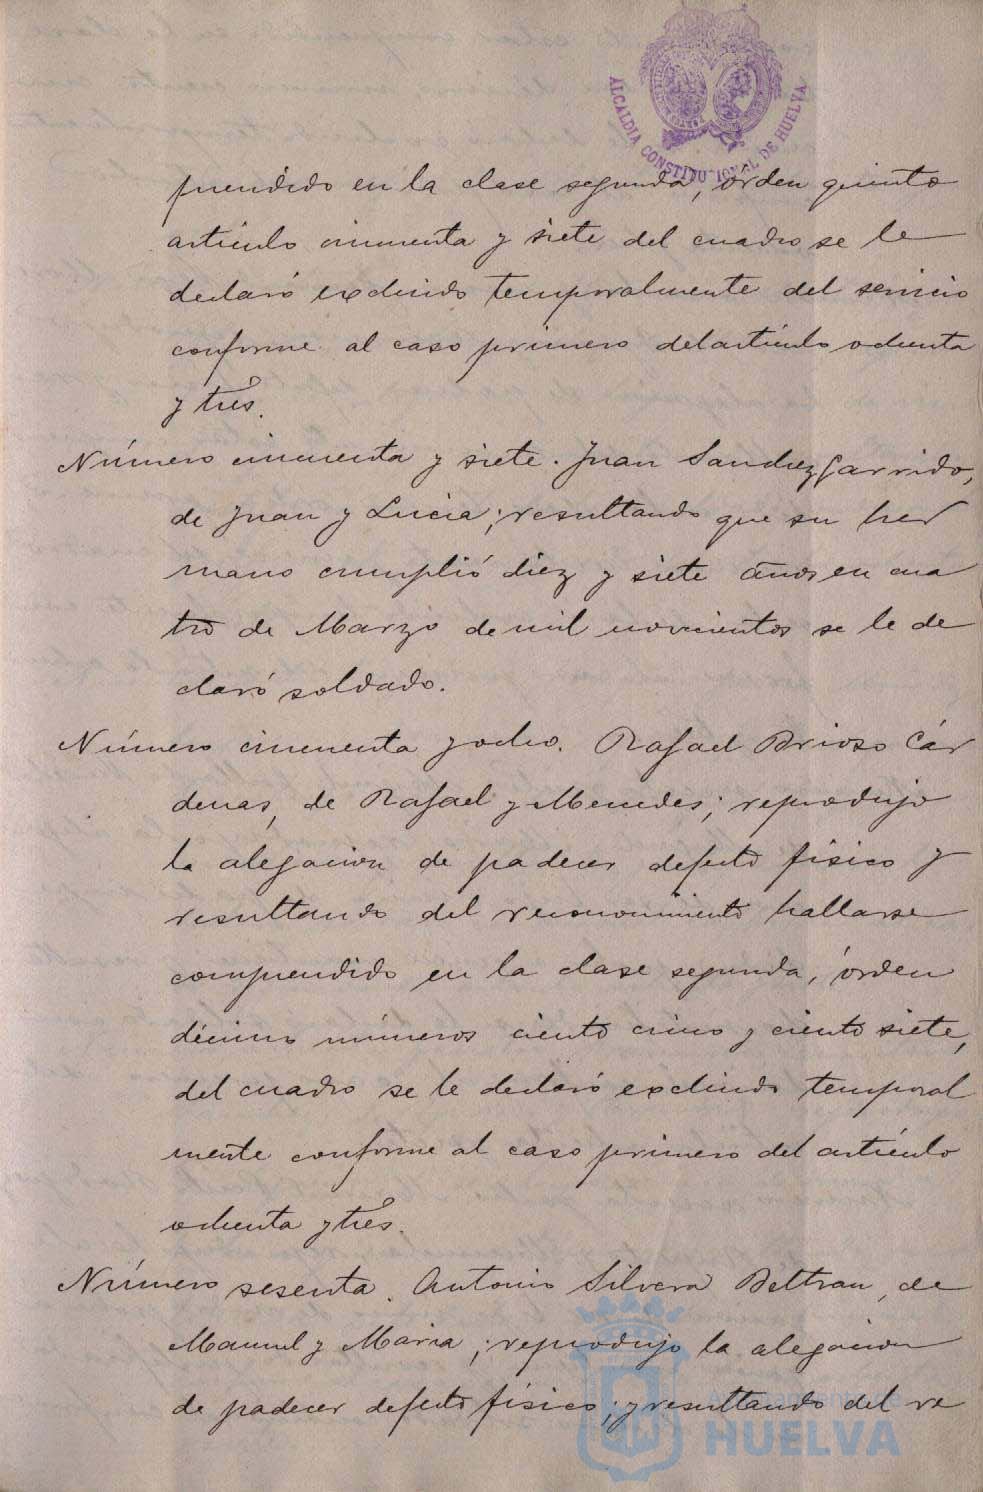 ALCALDIA CONSTITUCIONAL DE HUELVA
prendido en la clase segunda, órden quinto
artículo cincuenta y siete del cuadro se le
declaró excluido temporalmente del servicio
conforme al caso primero del artículo ochenta
y tres.
Número cincuenta y siete. Juan Sanchez Garrido,
de Juan y Lucia; resultando que su her
mano cumplió diez y siete años en cua
tro de Marzo de mil novecientos se le de
claró soldado.
Número cincuenta y ocho. Rafael Brioso Cár
denas, de Rafael y Mercedes; reprodujo
la alegacion de padecer defecto físico y
resultando del reconocimiento hallarse
comprendido en la clase segunda, órden
décimo números ciento cinco y ciento siete,
del cuadro se le declaró excluido temporal
mente conforme al caso primero del artículo
ochenta y tres.
Número sesenta. Antonio Silvera Beltran, de
Manuel y Maria; reprodujo la alegacion
de padecer defecto físico; y resultando del re
Ayuntamiento de
HUELVA